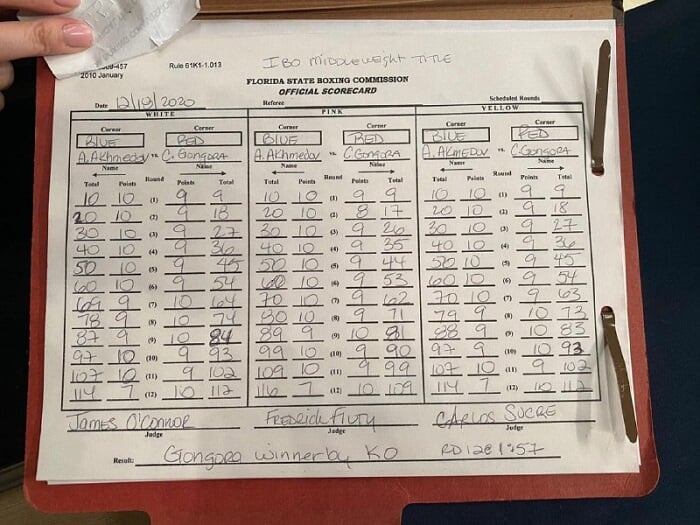 IBO MIDDLEWEIGHT TITLE
-457 Rule 61K1-1.013
2010 January
FLORIDA STATE BOXING COMMISSION
OFFICIAL SCORECARD
Date 12/19/2020 Referee Scheduled Rounds
WHITE PINK YELLOW
Corner Corner Corner Corner Corner Corner
BLUE RED BLUE RED BLUE RED
A. Akhmedov vs. C. Gongora A. Akhmedov vs. C. Gongora A. Akmedov vs. C. Gongora
Name Name Name Name Name Name
Total Points Round Points Total Total Points Round Points Total Total Points Round Points Total
10 10 (1) 9 9 10 10 (1) 9 9 10 10 (1) 9 9
20 10 (2) 9 18 20 10 (2) 8 17 20 10 (2) 9 18
30 10 (3) 9 27 30 10 (3) 9 26 30 10 (3) 9 27
40 10 (4) 9 36 40 10 (4) 9 35 40 10 (4) 9 36
50 10 (5) 9 45 50 10 (5) 9 44 50 10 (5) 9 45
60 10 (6) 9 54 60 10 (6) 9 53 60 10 (6) 9 54
69 9 (7) 10 64 70 10 (7) 9 62 70 10 (7) 9 63
78 9 (8) 10 74 80 10 (8) 9 71 79 9 (8) 10 73
87 9 (9) 10 84 89 9 (9) 10 81 88 9 (9) 10 83
97 10 (10) 9 93 99 10 (10) 9 90 97 9 (10) 10 93
107 10 (11) 9 102 109 10 (11) 9 99 107 10 (11) 9 102
114 7 (12) 10 112 116 7 (12) 10 109 114 7 (12) 10 112
James O'Connor CARLOS SUCRE
Judge Judge Judge
Result: Gongora winner by KO RD 12